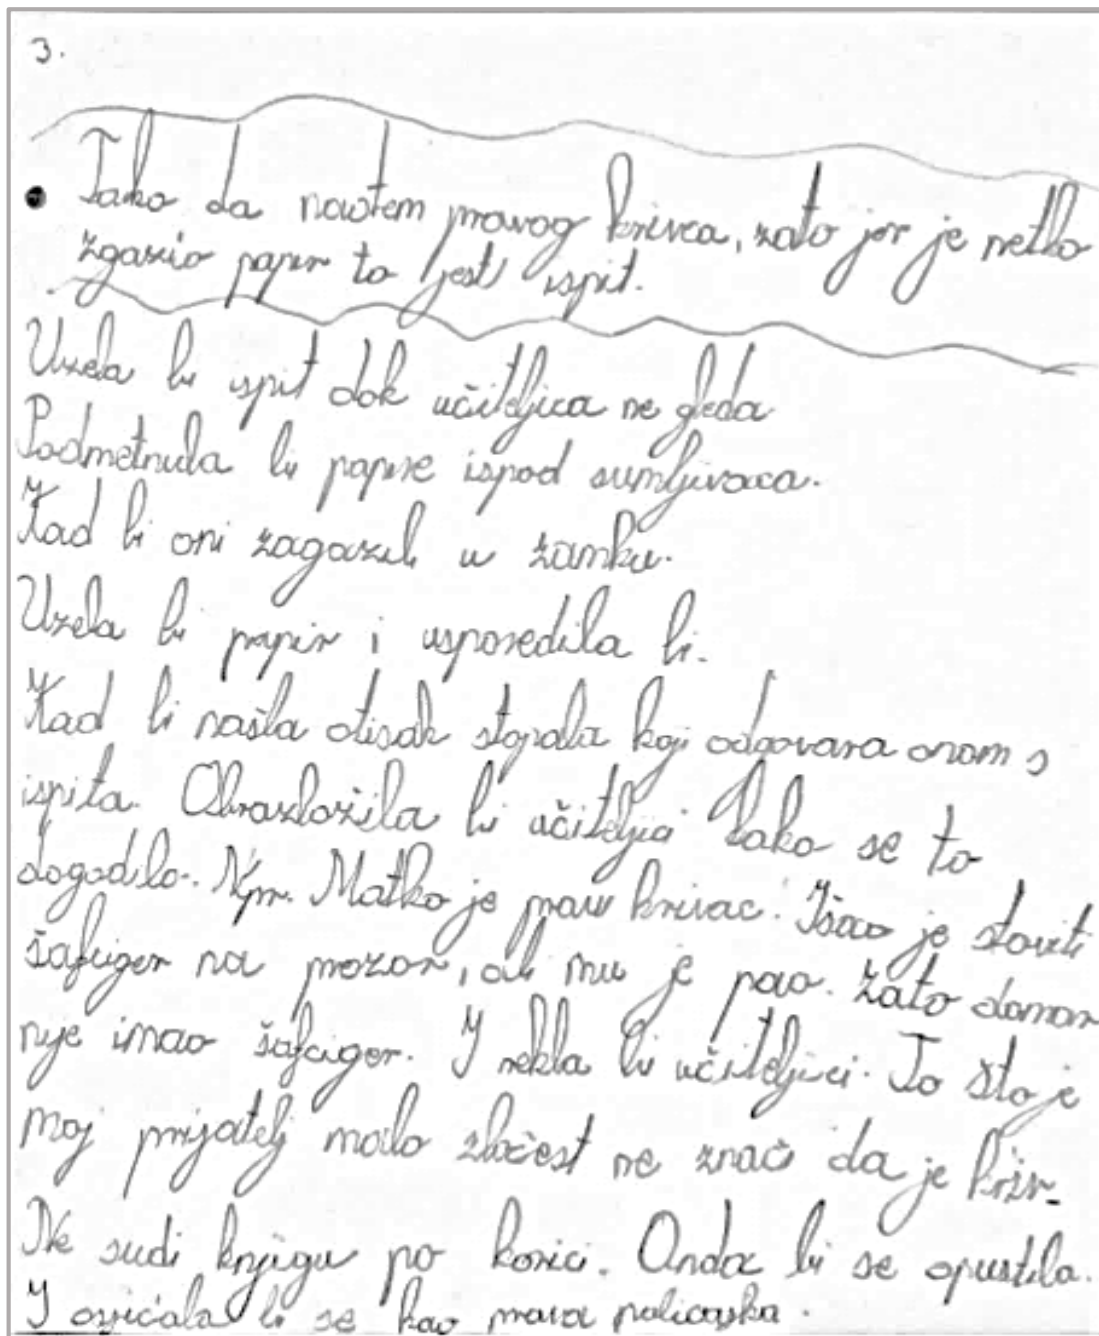 3.
• Tako da nađem pravog krivca, zato jer je netko
zgazio papir to jest ispit.
Uzela bi ispit dok učiteljica ne gleda
Podmetnula bi papire ispod sumljivaca.
Kad bi oni zagazili u zamku.
Uzela bi papir i usporedila bi.
Kad bi našla otisak stopala koji odgovara onom s
ispita. Obrazložila bi učiteljici kako se to
dogodilo. Npr. Matko je pravi krivac. Išao je staviti
šafciger na prozor, ali mu je pao. Zato danas
nije imao šafciger. I rekla bi učiteljici. To što je
moj prijatelj malo zločest ne znači da je kriv.
Ne sudi knjigu po korici. Onda bi se opustila.
I osjećala bi se kao prava policajka.